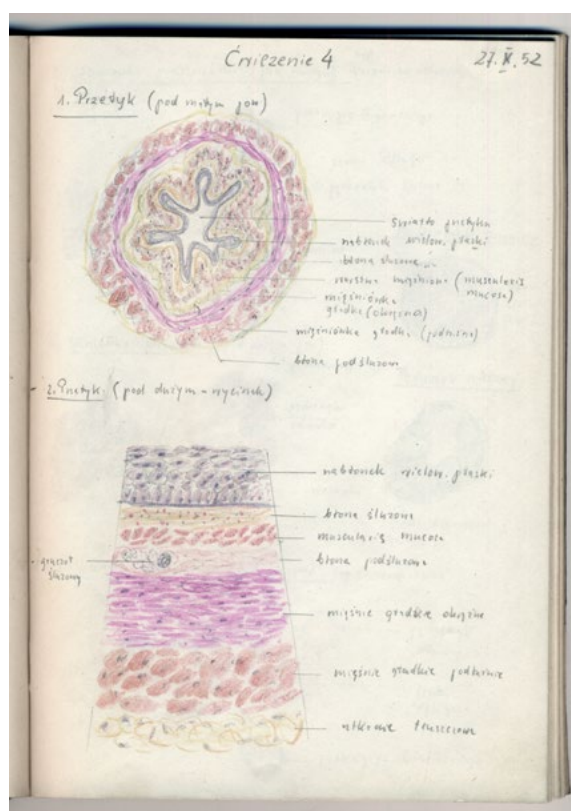 Ćwiczenie 4
27. X. 52
1. Przełyk (pod małym pow)
światło przełyku
nabłonek wielow. płaski
błona śluzowa
warstwa mięśniowa (muscularis
mucosa)
mięśniówka
gładka (okrężna)
mięśniówka gładka (podłużna)
błona podśluzowa
2. Przełyk (pod dużym - wycinek)
nabłonek wielow. płaski
błona śluzowa
muscularis mucosa
błona podśluzowa
gruczoł
śluzowy
mięśnie gładkie okrężne
mięśnie gładkie podłużne
tłuszczowa